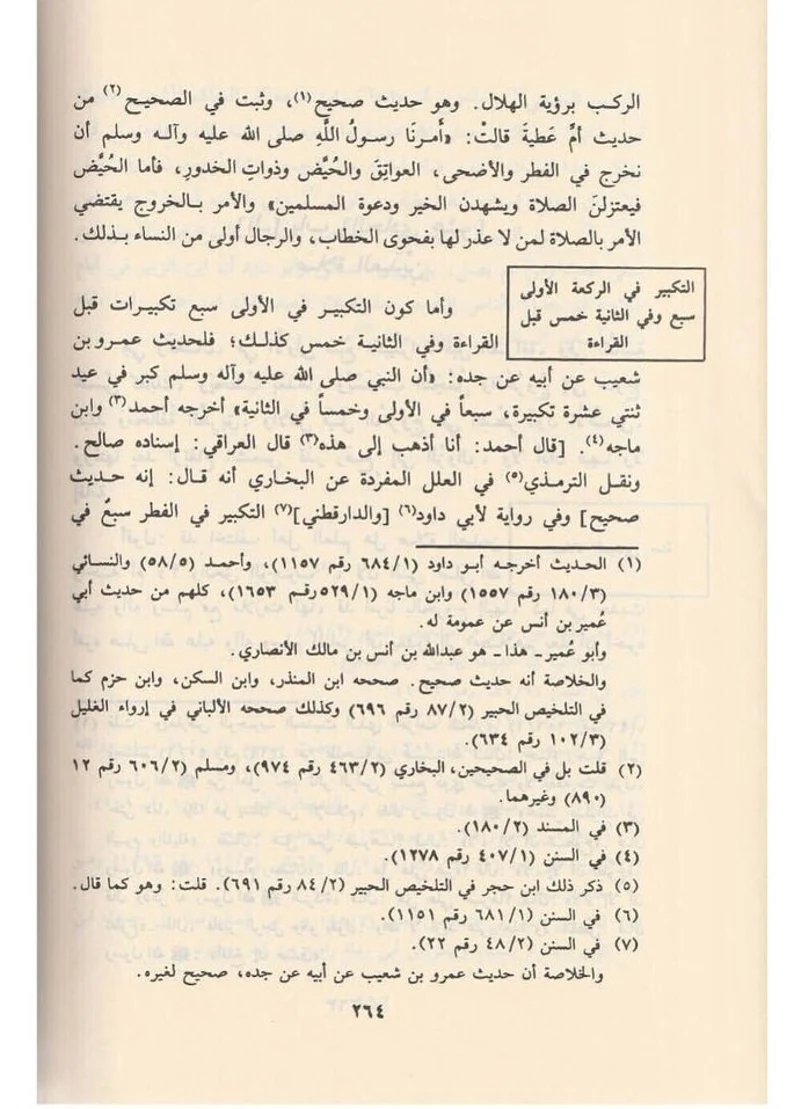 الركب برؤية الهلال. وهو حديث صحيح(١)، وثبت في الصحيح(٢) من
حديث أمِّ عَطيةَ قالتْ: «أَمرنَا رسولُ اللَّهِ صلى الله عليه وآله وسلم أن
نخرج في الفطر والأضحى، العواتِقَ والحُيَّض وذواتِ الخدورِ، فأما الحُيَّض
فيعتزلنَ الصلاة ويشهدن الخير ودعوة المسلمين» والأمر بالخروج يقتضي
الأمر بالصلاة لمن لا عذر لها بفحوى الخطاب، والرجال أولى من النساء بذلك.
التكبير في الركعة الأولى
سبع وفي الثانية خمس قبل
القراءة
وأما كون التكبير في الأولى سبع تكبيرات قبل
القراءة وفي الثانية خمس كذلك؛ فلحديث عمرو بن
شعيب عن أبيه عن جده: «أن النبي صلى الله عليه وآله وسلم كبر في عيد
ثنتي عشرة تكبيرة، سبعاً في الأولى وخمساً في الثانية» أخرجه أحمد(٣) وابن
ماجه(٤). [قال أحمد: أنا أذهب إلى هذه(٣) قال العراقي: إسناده صالح.
ونقل الترمذي(٥) في العلل المفردة عن البخاري أنه قال: إنه حديث
صحيح] وفي رواية لأبي داود(٦) [والدارقطني](٧) التكبير في الفطر سبعٌ في
(١) الحديث أخرجه أبو داود (١/ ٦٨٤ رقم ١١٥٧)، وأحمد (٥/ ٥٨) والنسائي
(٣/ ١٨٠ رقم ١٥٥٧) وابن ماجه (١/ ٥٢٩ رقم ١٦٥٣)، كلهم من حديث أبي
عُمير بن أنس عن عمومة له.
وأبو عُمير ـ هذا ـ هو عبدالله بن أنس بن مالك الأنصاري.
والخلاصة أنه حديث صحيح. صححه ابن المنذر، وابن السكن، وابن حزم كما
في التلخيص الحبير (٢/ ٨٧ رقم ٦٩٦) وكذلك صححه الألباني في إرواء الغليل
(٣/ ١٠٢ رقم ٦٣٤).
(٢) قلت بل في الصحيحين، البخاري (٢/ ٤٦٣ رقم ٩٧٤)، ومسلم (٢/ ٦٠٦ رقم ١٢
(٨٩٠) وغيرهما.
(٣) في المسند (٢/ ١٨٠).
(٤) في السنن (١/ ٤٠٧ رقم ١٢٧٨).
(٥) ذكر ذلك ابن حجر في التلخيص الحبير (٢/ ٨٤ رقم ٦٩١). قلت: وهو كما قال.
(٦) في السنن (١/ ٦٨١ رقم ١١٥١).
(٧) في السنن (٢/ ٤٨ رقم ٢٢).
والخلاصة أن حديث عمرو بن شعيب عن أبيه عن جده، صحيح لغيره.
٢٦٤